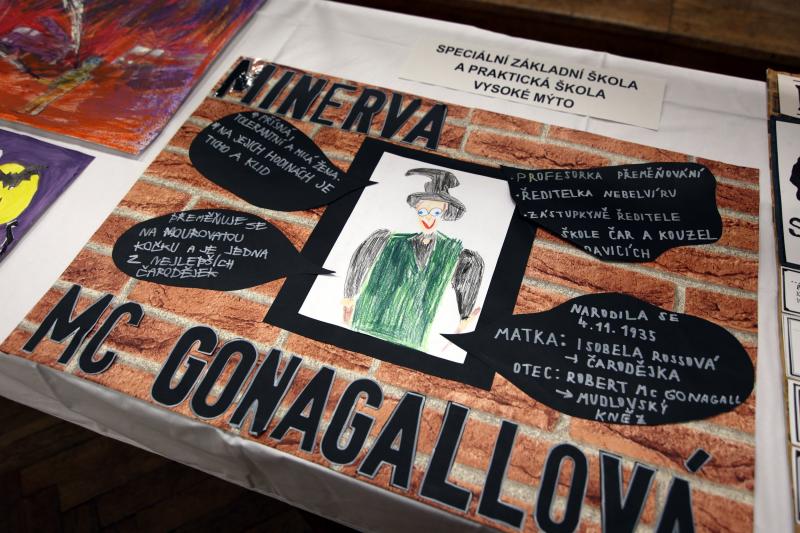 SPECIÁLNÍ ZÁKLADNÍ ŠKOLA
A PRAKTICKÁ ŠKOLA
VYSOKÉ MÝTO
MINERVA
PŘÍSNÁ,
TOLERANTNÍ A MILÁ ŽENA
NA JEJICH HODINÁCH JE
TICHO A KLID
- PROFESORKA PŘEMĚŇOVÁNÍ
- ŘEDITELKA NEBELVÍRU
- ZÁSTUPKYNĚ ŘEDITELE
ŠKOLE ČAR A KOUZEL
PŘEMĚŇUJE SE
NA MOUROVATOU
KOČKU A JE JEDNA
Z NEJLEPŠÍCH
ČARODĚJEK
NARODILA SE
4.11.1935
MATKA: ISOBELA ROSSOVÁ
→ ČARODĚJKA
OTEC: ROBERT MC GONAGALL
→ MUDLOVSKÝ
KNĚZ
MC GONAGALLOVÁ